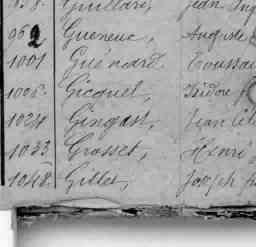 Guillard, Jean
962 Gueneuc, Auguste
1001 Guénard Toussai
1006. Gicquel, Isidore
1024 Gingast, Jean
1033 Grosset, Henri
1048. Gillet, Joseph